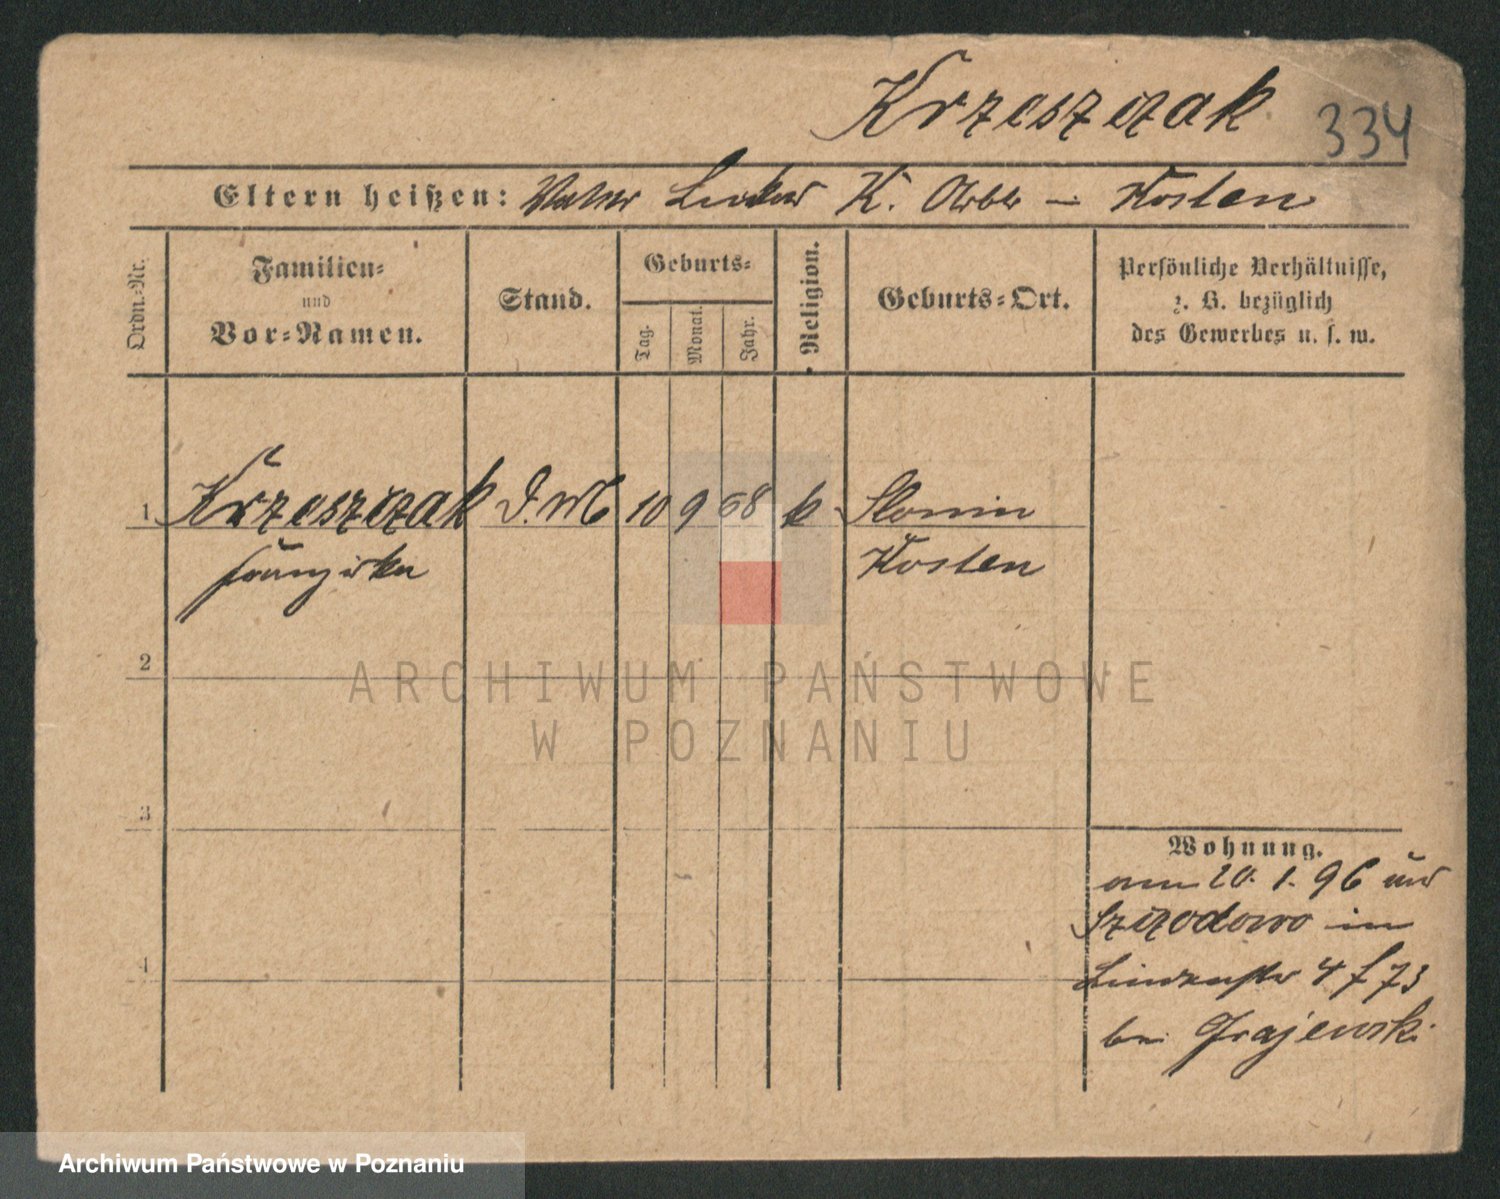 Krzeszczak 334
Eltern heißen: Vater K. Arbtr — Kosten
Ordn.-Nr.
Familien-
und
Vor-Namen.
Stand.
Geburts-
Tag.
Monat.
Jahr.
Religion.
Geburts-Ort.
Persönliche Verhältnisse,
z. B. bezüglich
des Gewerbes u. s. w.
1 Krzeszczak D. M 10 9 68 k Slonin
Franziska Kosten
2
3
4
Wohnung.
am 20. 1. 96 aus
in
Lindenstr 4 f 73
bei Grajewski
ARCHIWUM PAŃSTWOWE
W POZNANIU
Archiwum Państwowe w Poznaniu